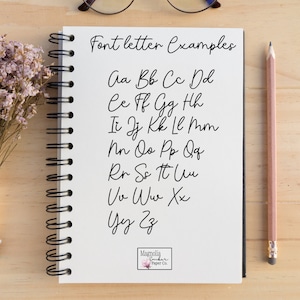 Font letter Examples
Aa Bb Cc Dd
Ee Ff Gg Hh
Ii Jj Kk Ll Mm
Nn Oo Pp Qq
Rr Ss Tt Uu
Vv Ww Xx
Yy Zz
Magnolia
Paper Co.